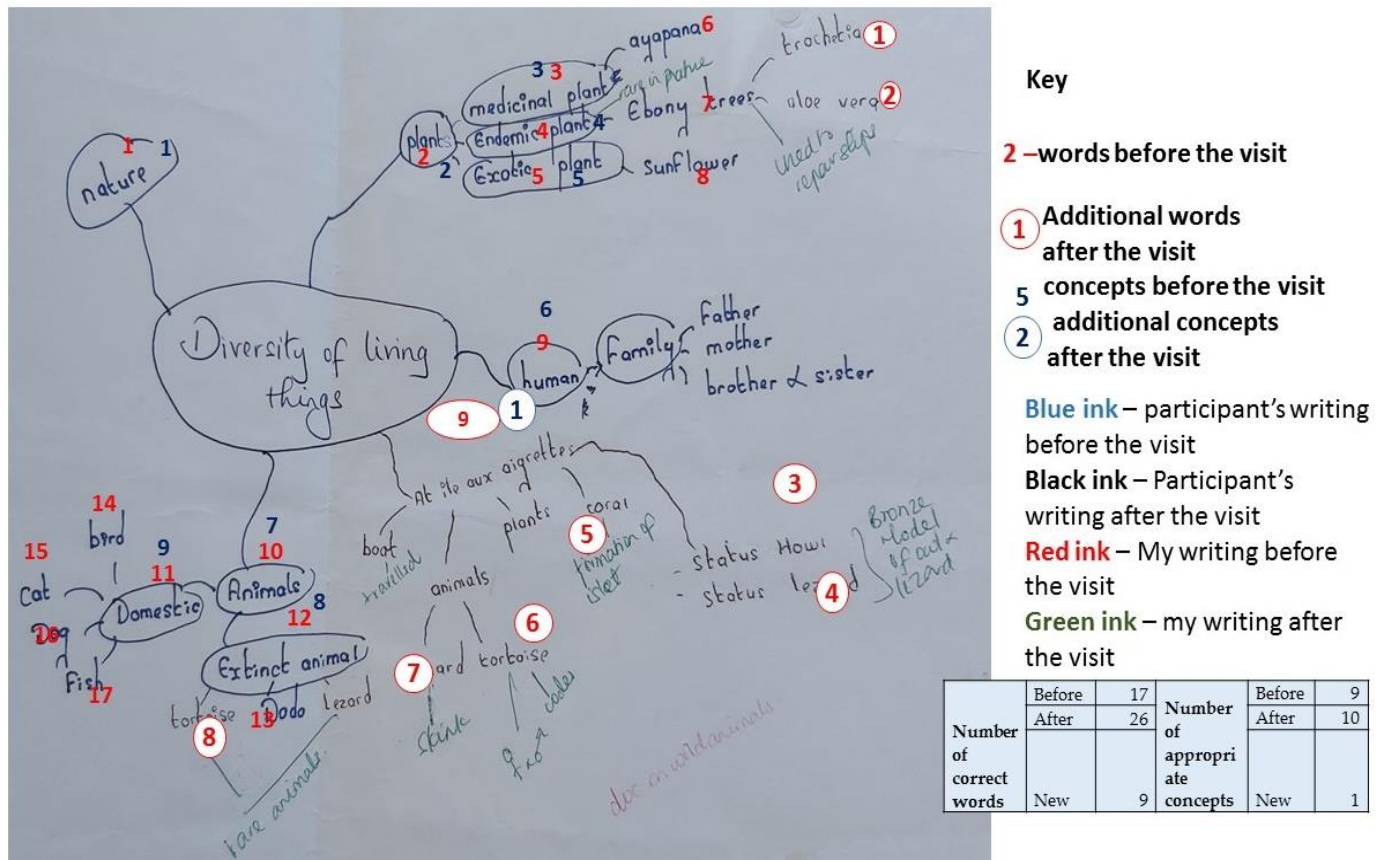 nature
1
1
plants
2
2
3 3
medicinal plant
Endemic plant
4
4
Exotic plant
5
5
ayapana 6
rare in
Ebony trees
7
sunflower
8
trochetia 1
aloe vera 2
used to
Diversity of living
things
6
9
human
Family
Father
mother
brother & sister
9
1
At île aux aigrettes
boat
travelled
animals
plants
coral
5
formation of
islet
3
- Status Howl
- Status lezard
4
Bronze
Model
lizard
6
7
ard
tortoise
skink
codes
14
bird
15
Cat
9
11
Domestic
Dog
16
Fish
17
7
10
Animals
8
12
Extinct animal
tortoise
8
Dodo
13
lezard
rare animals.
doc on wild animals
Key
2 –words before the visit
1 Additional words
after the visit
5 concepts before the visit
2 additional concepts
after the visit
Blue ink – participant's writing
before the visit
Black ink – Participant's
writing after the visit
Red ink – My writing before
the visit
Green ink – my writing after
the visit
Number
of
correct
words
Before 17
After 26
New 9
Number
of
appropri
ate
concepts
Before 9
After 10
New 1